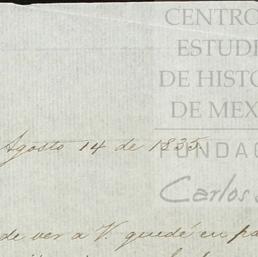 CENTRO
ESTUDI
DE HISTO
DE MEX
FUNDAC
Carlos
Agosto 14 de 1835.
de ver a V. quedé en pa